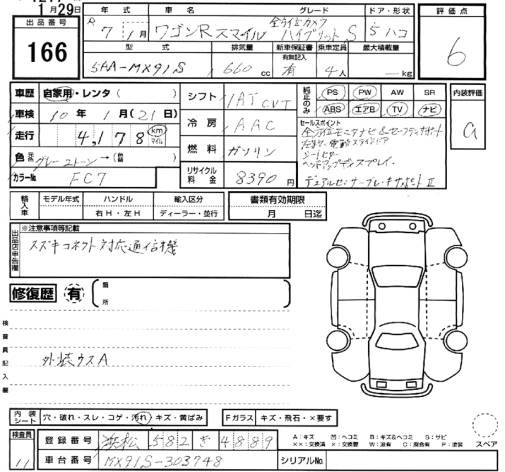 月29日
出品番号
166
年式 車名 グレード ドア・形状
R 7年 1月 ワゴンRスマイル 全方位カメラ ハイブリッドS 5 ハコ
評価点
6
型式 排気量 新車保証書 乗車定員 最大積載量
有無記入
5AA-MX91S 660cc 有 4人 kg
車歴 自家用・レンタ( )
車検 10年 1月(21日)
走行 4,178 km マイル
色 グレー 2トーン→( )
カラーNo. FC7
シフト IAT CVT
冷房 AAC
燃料 ガソリン
リサイクル料金 8390円
純正のみ PS PW AW SR
ABS エアB TV ナビ
セールスポイント
全方位モニタナビ&セーフティサポート
シートヒーター
ヘッドアップディスプレイ
デュアルセンサーブレーキサポートII
内装評価
a
輸入車 モデル年式 ハンドル 輸入区分
年 右H・左H ディーラー・並行
書類有効期限
月 日迄
出品店申告欄
※注意事項等記載
スズキコネクト対応通信機
修復歴 有 箇所
検査員記入欄
外装ウスA
内装シート 穴・破れ・スレ・コゲ・汚れ・キズ・黄ばみ
Fガラス キズ・飛石・×要す
検査員
11
登録番号 浜松 582 さ 4889
車台番号 MX91S-303748
シリアルNo.
A:キズ U:ヘコミ B:キズ&ヘコミ S:サビ
××:交換済 ×:交換要 W:波 C:腐食 P:塗装
スペア